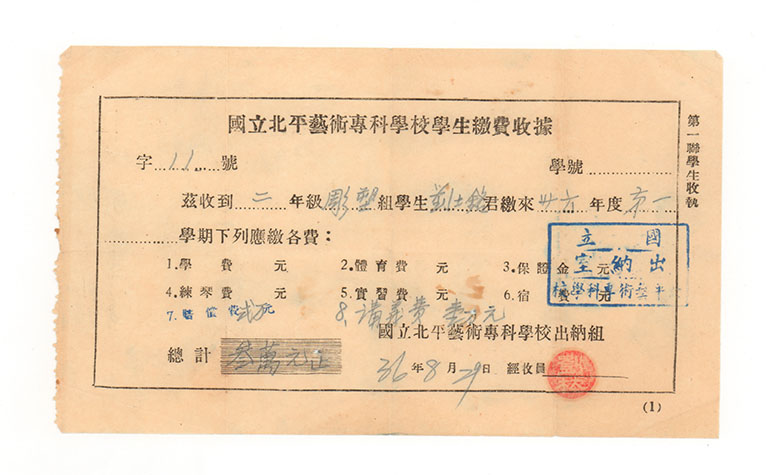 國立北平藝術專科學校學生繳費收據
第一聯學生收執
字 11 號 學號
茲收到 二 年級 彫塑 組學生 君繳來 卅六 年度 第一
學期下列應繳各費：
1.學費 元 2.體育費 元 3.保證金 元
4.練琴費 元 5.實習費 元 6.宿費 元
7. 賠償費 弍万元 8.講義費 壹万元
國立北平藝術專科學校出納組
總計 叁萬元正
36年8月29日 經收員
(1)
國立
出納室